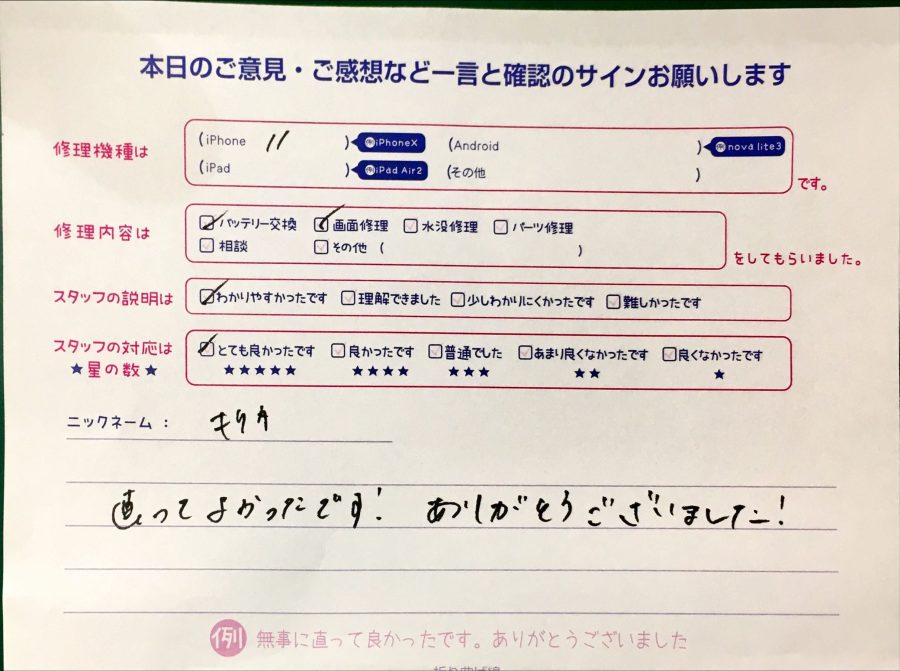 本日のご意見・ご感想など一言と確認のサインお願いします
修理機種は (iPhone 11 ) 例iPhoneX (Android ) 例nova lite3
(iPad ) 例iPad Air2 (その他 ) です。
修理内容は バッテリー交換 画面修理 水没修理 パーツ修理
相談 その他 ( ) をしてもらいました。
スタッフの説明は わかりやすかったです 理解できました 少しわかりにくかったです 難しかったです
スタッフの対応は とても良かったです 良かったです 普通でした あまり良くなかったです 良くなかったです
★星の数★ ★★★★★ ★★★★ ★★★ ★★ ★
ニックネーム：
直ってよかったです! ありがとうございました!
例 無事に直って良かったです。ありがとうございました